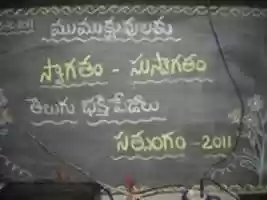 ముముక్షువులకు
స్వాగతం - సుస్వాగతం
తెలుగు భక్తి పేజీలు
సత్సంగం - 2011